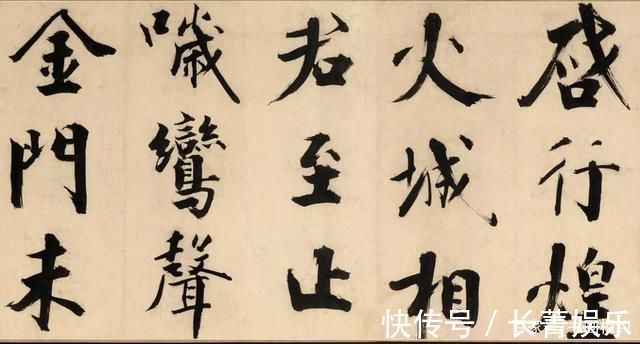 启行煌
火城相
君至止
噦鸞聲
金門未
快传号 / 长菁娱乐